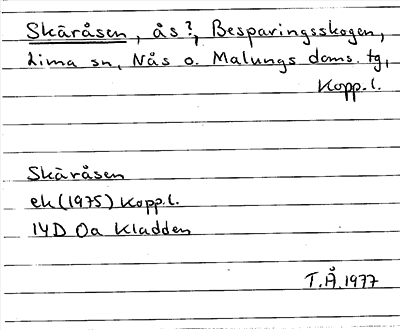 Skäråsen, ås?, Besparingsskogen,
Lima sn, Nås o. Malungs doms. tg,
Kopp.l.
Skäråsen
ek(1975) Kopp.l.
14D 0a Kladden
T.Å.1977